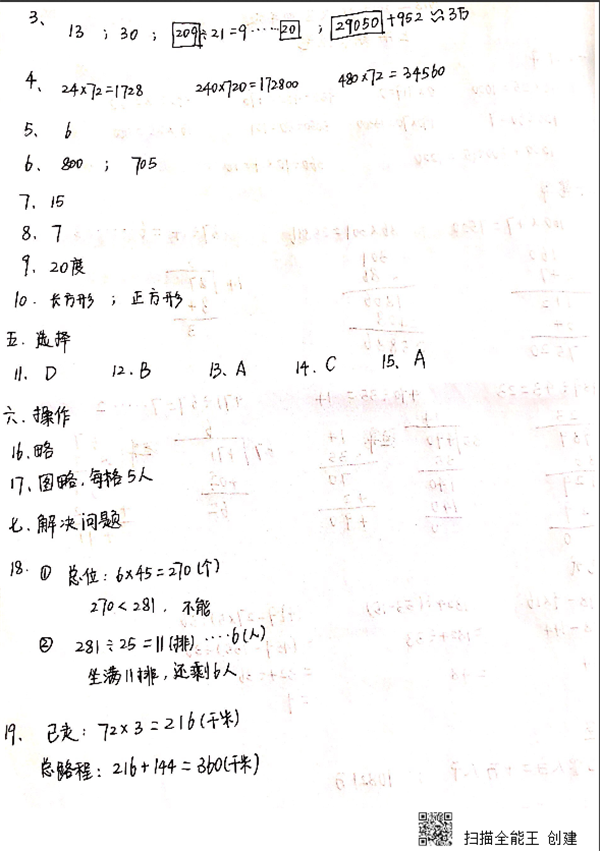 3、 13 ; 30 ; 209÷21=9……20 ; 29050+952≈3万
4、 24×72=1728 240×720=172800 480×72=34560
5、 6
6、 800 ; 705
7、 15
8、 7
9、 20度
10. 长方形 ; 正方形
五. 选择
11. D 12. B 13. A 14. C 15. A
六. 操作
16. 略
17、图略, 每格5人
七. 解决问题
18. ① 总位: 6×45=270(个)
270<281, 不能
② 281÷25=11(排)……6(人)
坐满11排, 还剩6人
19、 已走: 72×3=216(千米)
总路程: 216+144=360(千米)
扫描全能王 创建